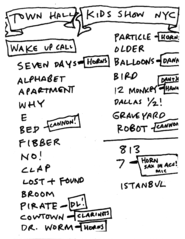 TOWN HALL
WAKE UP CALL
SEVEN DAYS HORNS
ALPHABET
APARTMENT
WHY
E
BED CANNON!
FIBBER
NO!
CLAP
LOST + FOUND
BROOM
PIRATE DL!
COWTOWN CLARINET
DR. WORM HORNS
KIDS SHOW NYC
PARTICLE HORNS
OLDER
BALLOONS DANNY
BIRD
12 MONKEY
DALLAS 1/2!
GRAVEYARD
ROBOT CANNON
813
7 HORN
SAX IN ACC!
MIC
ISTANBUL